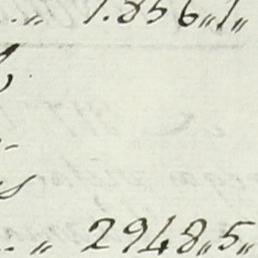 „ 1.856„1„
„ 2948„5„